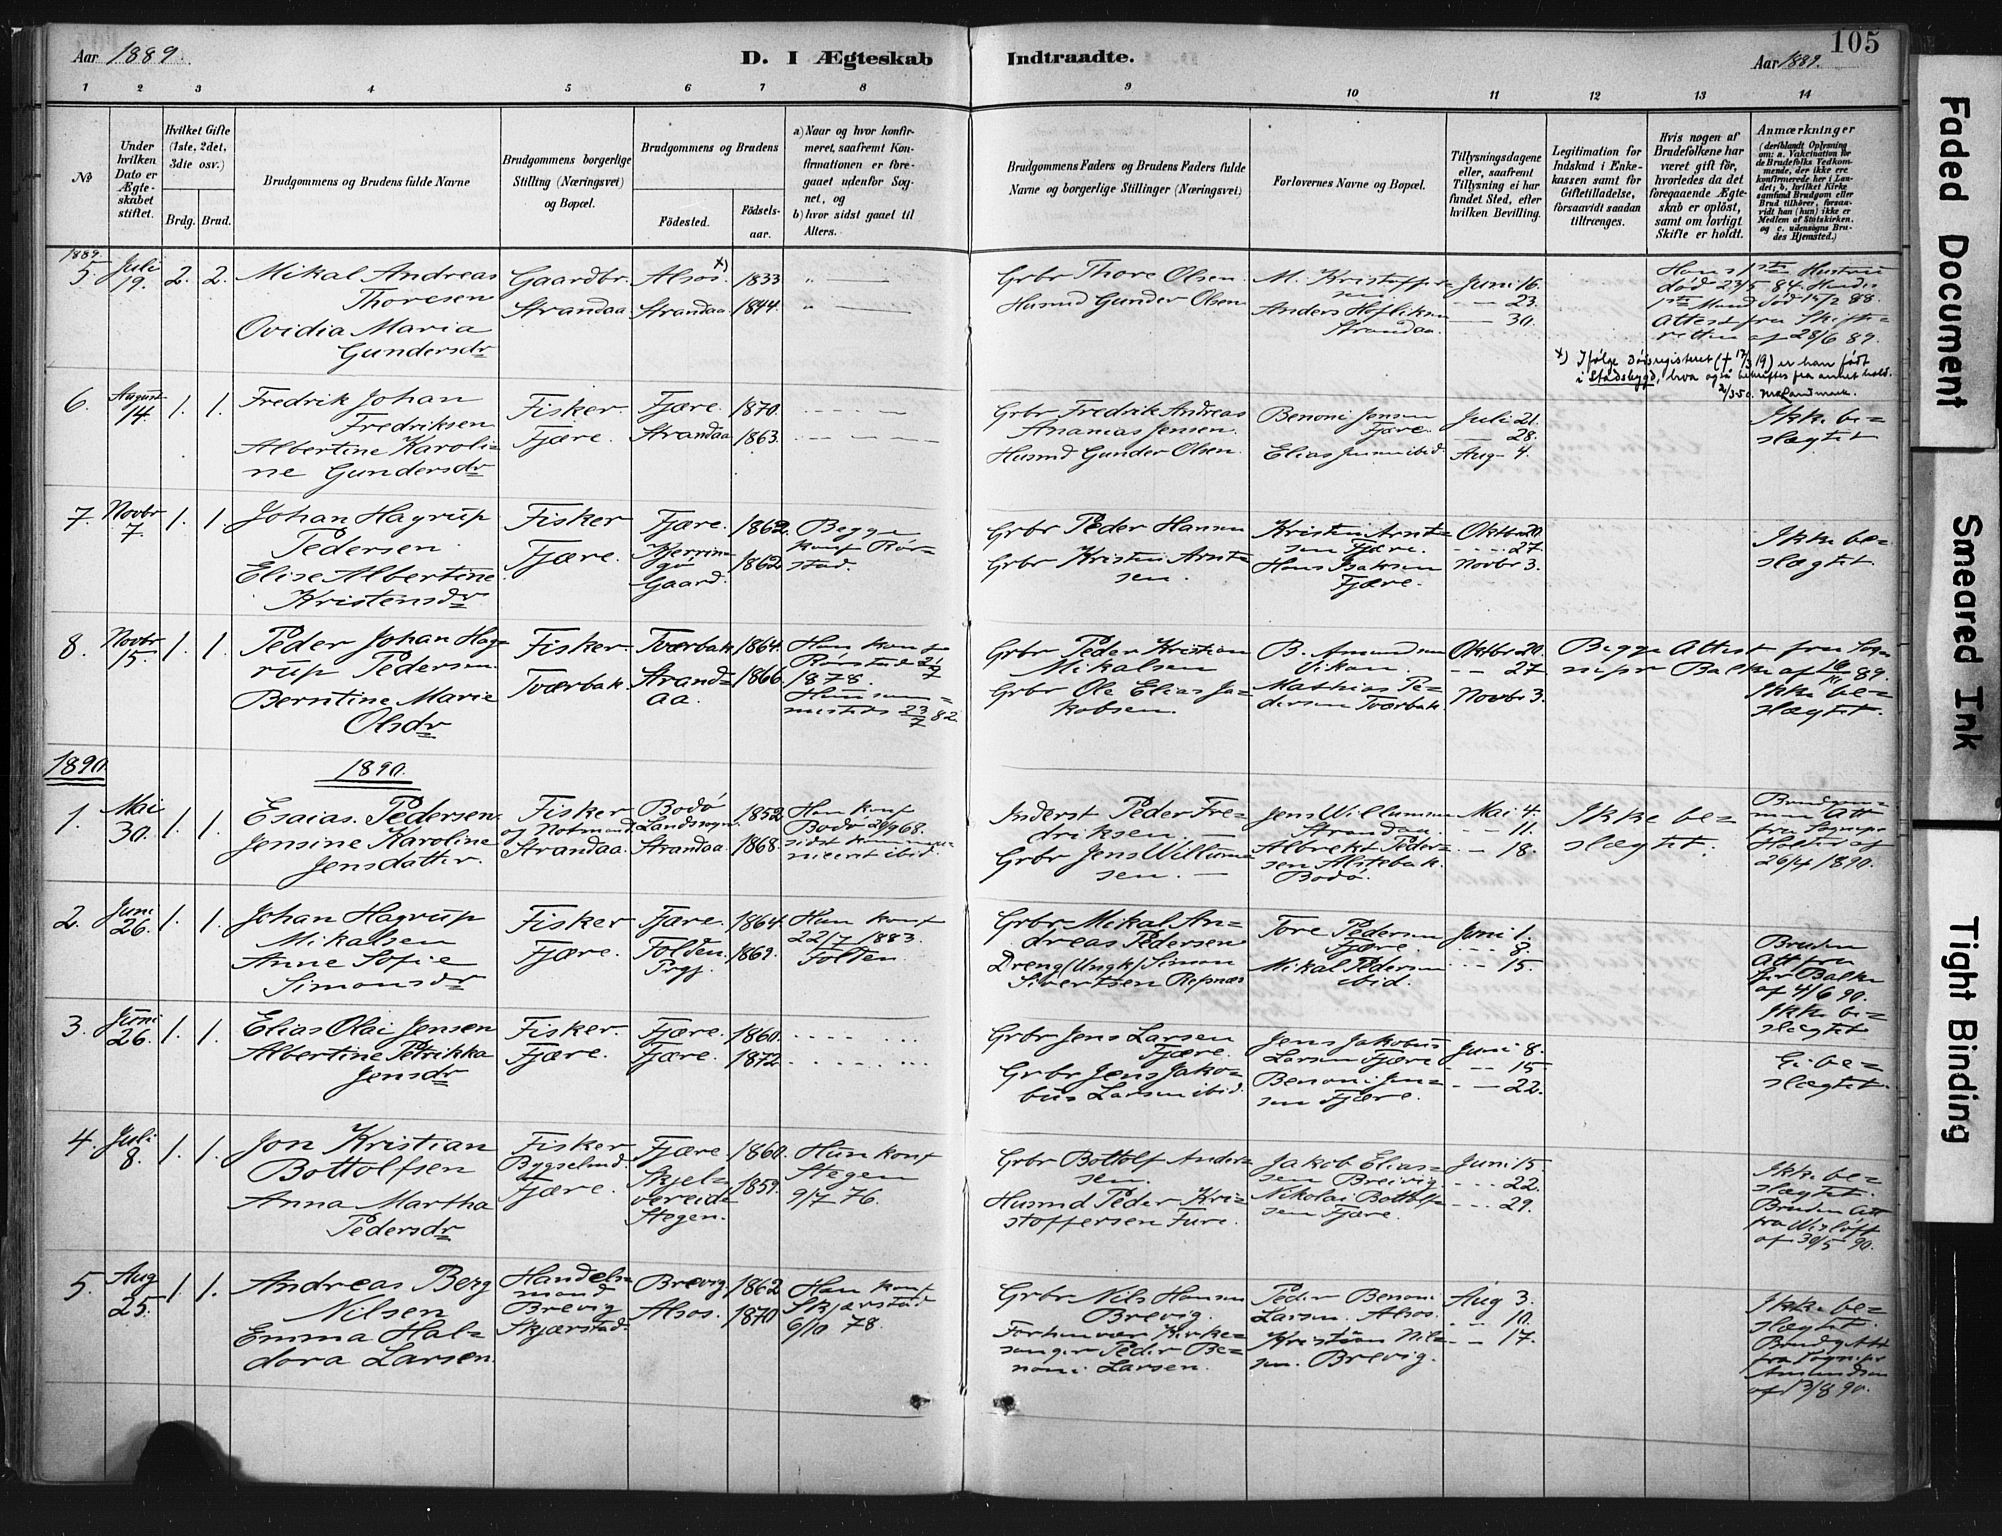 Aar 1889.
D. I Ægteskab Indtraadte.
105
Aar 1889.
1 2 3 4 5 6 7 8 9 10 11 12 13 14
No
Under hvilken Dato er Ægteskabet stiftet.
Hvilket Gifte (1ste, 2det, 3die osv.)
Brdg. Brud.
Brudgommens og Brudens fulde Navne
Brudgommens borgerlige Stilling (Næringsvei) og Bopæl.
Brudgommens og Brudens
Födested.
Födsels-aar.
a) Naar og hvor konfirmeret, saafremt Konfirmationen er foregaaet udenfor Sognet, og
b) hvor sidst gaaet til Alters.
Brudgommens Faders og Brudens Faders fulde Navne og borgerlige Stillinger (Næringsvei)
Forlovernes Navne og Bopæl.
Tillysningsdagene eller, saafremt Tillysning ei har fundet Sted, efter hvilken Bevilling.
Legitimation for Indskud i Enkekassen samt for Giftetilladelse, forsaavidt saadan tiltrænges.
Hvis nogen af Brudefolkene har været gift för, hvorledes da det foregaaende Ægteskab er oplöst, samt om lovligt Skifte er holdt.
Anmærkninger (deriblandt Oplysning om: a. Vakcination for de Brudefolks Vedkommende, der ikke ere konfirmerede her i Landet; b. hvilket Kirkesamfund Brudgom eller Brud tilhörer, forsaavidt han (hun) ikke er Medlem af Statskirken, og c. udensogns Brudes Hjemsted.)
1889.
5. Juli 19. 2. 2. Mikal Andreas Thoresen
Ovidia Maria Gundersdr
Gaardbr. Strandaa
Alsos x) 1833
Strandaa 1844.
Grbr Thore Olsen
Husmd Gunder Olsen
M. Kristoffersen
Anders Hofliksen Strandaa.
Juni 16. 23. 30.
Hans 1ste Hustru död 23/5 84. Hendes 1ste Mand död 15/2 88. Attest fra Skifteretten af 28/6 89.
x) Ifølge dødsregisteret († 17/3 19) er han født
i Stadsbygd, hva også bekreftes fra annet hold.
6. August 14. 1. 1. Fredrik Johan Fredriksen
Albertine Karoline Gundersdr
Fisker. Fjære.
Fjære. 1870.
Strandaa 1863.
Grbr Fredrik Andreas Ananias Jensen.
Husmd Gunder Olsen.
Benoni Jensen Fjære.
Elias Jensen ibid.
Juli 21. 28. Aug 4.
Ikke beslægtet
7. Novbr 7 1. 1. Johan Hagrup Pedersen.
Elise Albertine Kristensdr
Fisker Fjære.
Fjære. 1862.
Kjerringø Gaard. 1862
Begge konf Rørstad.
Grbr Peder Hansen
Grbr Kristen Arntsen.
Kristen Arntsen Fjære.
Hans Isaksen Fjære.
Oktbr 20. 27. Novbr 3.
Ikke beslægtet
8. Novbr 15. 1. 1. Peder Johan Hagrup Pedersen.
Berntine Marie Olsdr
Fisker. Tværbak.
Tværbak 1864.
Strandaa. 1866.
Han konf Rørstad 21/7 1878.
Hun sammesteds 23/7 82.
Grbr Peder Kristian Mikalsen
Grbr Ole Elias Jakobsen.
B. Amundsen Vikan.
Mathias Pedersen Tværbak.
Oktbr 20. 27 Novbr 3.
Begge Attest fra Sognepr Balke af 89.
Ikke beslægtet.
1890. 1890.
1. Mai 30. 1. 1. Esaias Pedersen.
Jensine Karoline Jensdatter.
Fisker og Notmand Strandaa.
Bodø Landsogn. 1852
Strandaa. 1868.
Han konf Bodø 20/9 68. sidst kommuniceret ibid.
Inderst Peder Fredriksen.
Grbr Jens Willumsen.
Jens Willumsen Strandaa.
Albrekt Pedersen Alstebak. Bodø.
Mai 4. 11. 18.
Ikke beslægtet.
Brudgommen Att fra Sognepr Holter af 26/4 1890.
2. Juni 26. 1. 1. Johan Hagrup Mikalsen
Anne Sofie Simonsdr
Fisker Fjære.
Fjære. 1864.
Folden Prgj. 1869.
Hun konf 22/7 1883. Folden
Grbr Mikal Andreas Pedersen
Dreng (Ungk) Simon Sivertsen Refsnæs
Tore Pedersen Fjære.
Mikal Pedersen ibid.
Juni 1. 8. 15.
Bruden Att fra Balke af 4/6 90. Ikke beslægtet
3. Juni 26. 1. 1. Elias Olai Jensen
Albertine Petrikka Jensdr
Fisker. Fjære.
Fjære. 1860.
Fjære. 1872.
Grbr Jens Larsen Fjære.
Grbr Jens Jakobus Larsen ibid.
Jens Jakobus Larsen Fjære
Benoni Jensen Fjære.
Juni 8. 15 22.
Ei beslægtet.
4. Juli 8. 1. 1. Jon Kristian Bottolfsen
Anna Martha Pedersdr
Fisker Bygselmd. Fjære.
Fjære. 1860.
Skjelvereid Stegen. 1859.
Hun konf Stegen 9/7 76.
Grbr Bottolf Andersen.
Husmd Peder Kristoffersen Fure.
Jakob Eliassen Breivig.
Nikolai Bottolfsen Fjære.
Juni 15. 22. 29.
Ikke beslægtet. Bruden Att fra Wisløff af 30/5 90.
5. Aug 25. 1. 1. Andreas Berg Nilsen
Emma Haldora Larsen.
Handelsmand Brevig Skjærstad.
Brevig 1862
Alsos. 1870
Han konf Skjærstad 6/10 78.
Grbr Nils Hansen Brevig.
Forhenvær Kirkesanger Peder Benoni Larsen.
Peder Benoni Larsen. Alsos.
Kristian Nilsen. Brevig.
Aug 3. 10. 17.
Ikke beslægtet. Brudg Att fra Sognepr Amundsen af 13/8 90.
Faded Document
Smeared Ink
Tight Binding